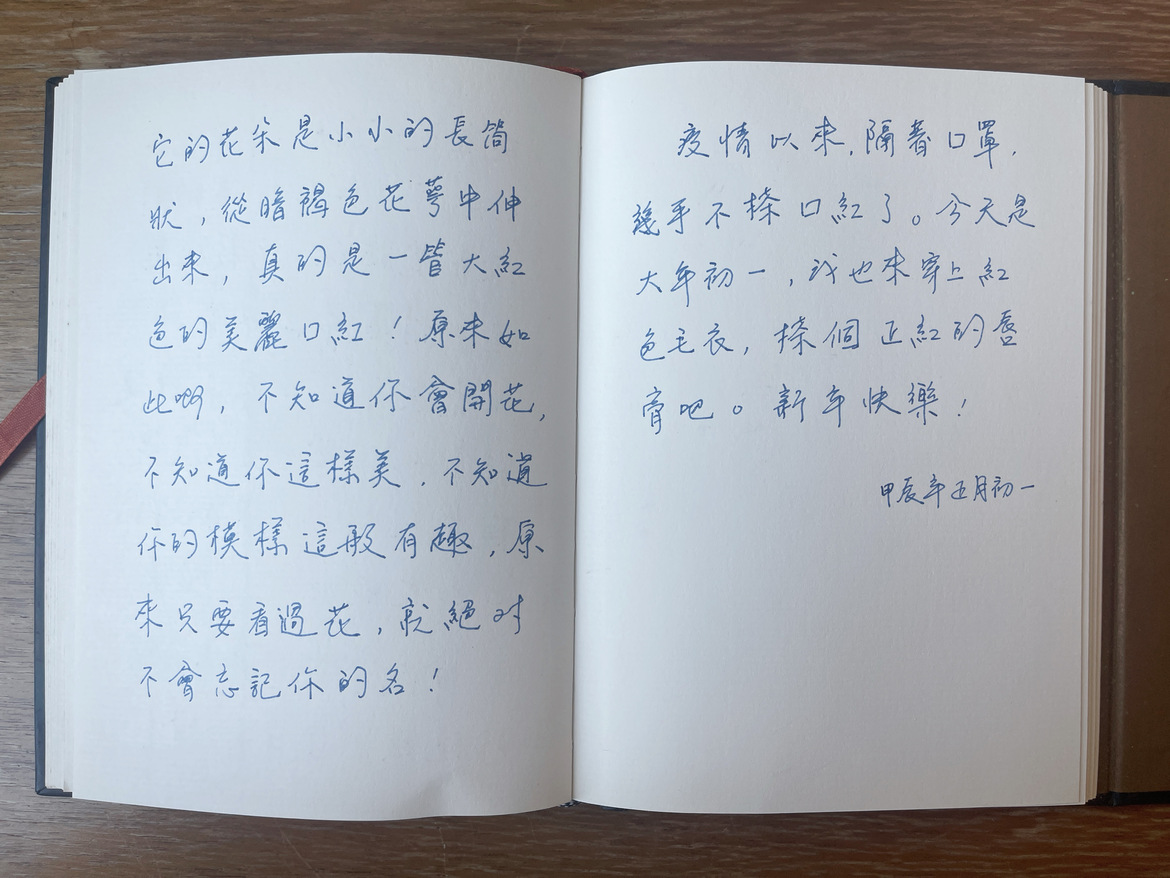 它的花朵是小小的長筒
狀，從暗褐色花萼中伸
出來，真的是一管大紅
色的美麗口紅！原來如
此啊，不知道你會開花，
不知道你這樣美，不知道
你的模樣這般有趣，原
來只要看過花，就絕对
不會忘記你的名！
疫情以來，隔著口罩，
幾乎不搽口紅了。今天是
大年初一，我也來穿上紅
色毛衣，搽個正紅的唇
膏吧。新年快樂！
甲辰年五月初一